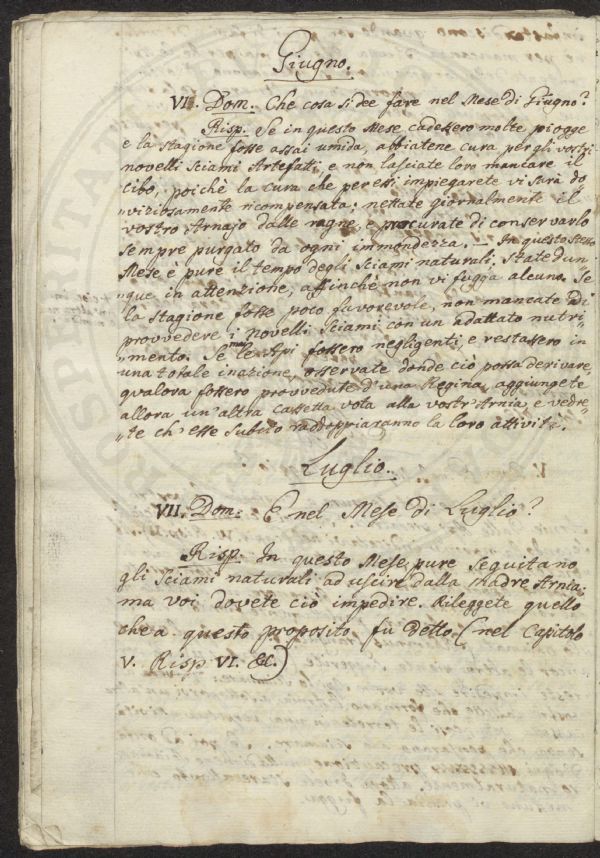 Giugno.
VI. Dom. Che cosa si dee fare nel Mese di Giugno?
Risp. Se in questo Mese cadessero molte piogge
e la stagione fosse assai umida, abbiatene cura per gli vostri
novelli Sciami Artefatti, e non lasciate loro mancare il
cibo, poichè la cura che per essi impiegarete vi sarà do
„viziosamente ricompensata; nettate giornalmente il
vostro Arnajo dalle ragne, e procurate di conservarlo
sempre purgato da ogni immondezza. — In questo stesso
Mese è pure il tempo degli Sciami naturali. State dun
„que in attenzione, affinchè non vi fugga alcuno. Se
la stagione fosse poco favorevole, non mancate di
provvedere i novelli Sciami con un adattato nutri
„mento. Se mai le Api fossero negligenti, e restassero in
una totale inazione, osservate donde ciò possa derivare,
qualora fossero provvedute d'una Regina, aggiungete
allora un'altra cassetta vota alla vostr'Arnia, e vedre„
„te ch'esse subito raddoppiaranno la loro attività.
Luglio.
VII. Dom: E nel Mese di Luglio?
Risp. In questo Mese pure seguitano
gli Sciami naturali ad uscire dalla Madre Arnia;
ma voi dovete ciò impedire. Rileggete quello
che a questo proposito fù detto (nel Capitolo
V. Risp VI. &c.)